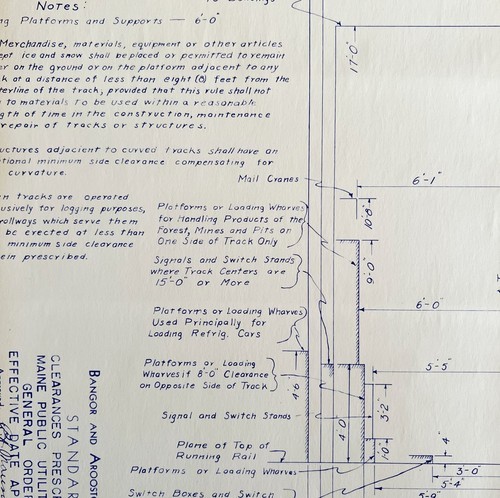 Notes:
ng Platforms and Supports — 6'-0"
Merchandise, materials, equipment or other articles
ept ice and snow shall be placed or permitted to remain
er on the ground or on the platform adjacent to any
k at a distance of less than eight (8) feet from the
terline of the track, provided that this rule shall not
to materials to be used within a reasonable
gth of time in the construction, maintenance
repair of tracks or structures.
uctures adjacent to curved tracks shall have an
tional minimum side clearance compensating for
curvature.
en tracks are operated
usively for logging purposes,
rollways which serve them
be erected at less than
minimum side clearance
ein prescribed.
17'-0"
Mail Cranes
6'-1"
10'-8"
Platforms or Loading Wharves
for Handling Products of the
Forest, Mines and Pits on
One Side of Track Only
9'-0"
Signals and Switch Stands
where Track Centers are
15'-0" or More
6'-0"
Platforms or Loading Wharves
Used Principally for
Loading Refrig. Cars
Platforms or Loading
Wharves if 8'-0" Clearance
on Opposite Side of Track
5'-5"
4'-9"
3'-2"
Signal and Switch Stands
4'-0"
1'-0"
4"
Plane of Top of
Running Rail
Platforms or Loading Wharves
3'-0"
5'-4"
5'-9"
Switch Boxes and Switch
BANGOR AND AROOST
STANDAR
CLEARANCES PRESCR
MAINE PUBLIC UTILI
GENERAL ORDER
EFFECTIVE DATE AP